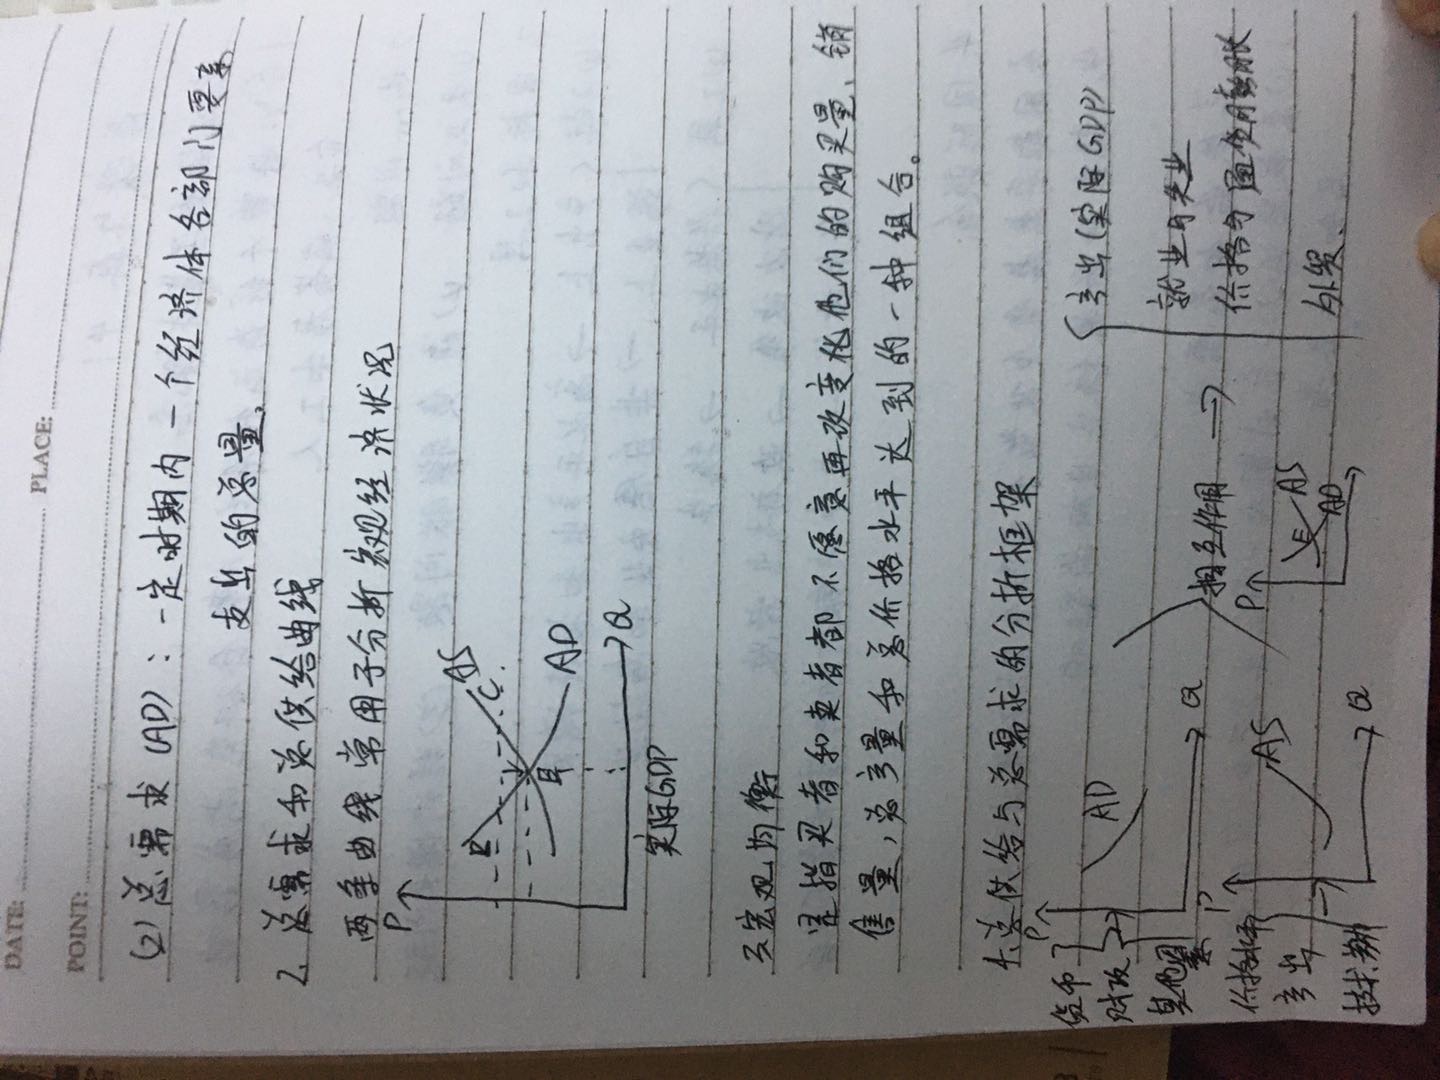 DATE:
POINT: PLACE:
(2) 总需求 (AD): 一定时期内一个经济体各部门要素
支出的总量.
2、总需求和总供给曲线
两条曲线常用于分析宏观经济状况
P
AS
C
B
E
AD
Q
实际GDP
3、宏观均衡
是指买者和卖者都不愿意再改变他们的购买量、销
售量,总产量和总价格水平达到的一种组合。
4、总供给与总需求的分析框架
货币
财政
其他因素
P
AD
Q
相互作用 →
产出(实际GDP)
就业与失业
价格与通货膨胀
外贸、
价格水平
产出
技术
P
AS
Q
P
E
AS
AD